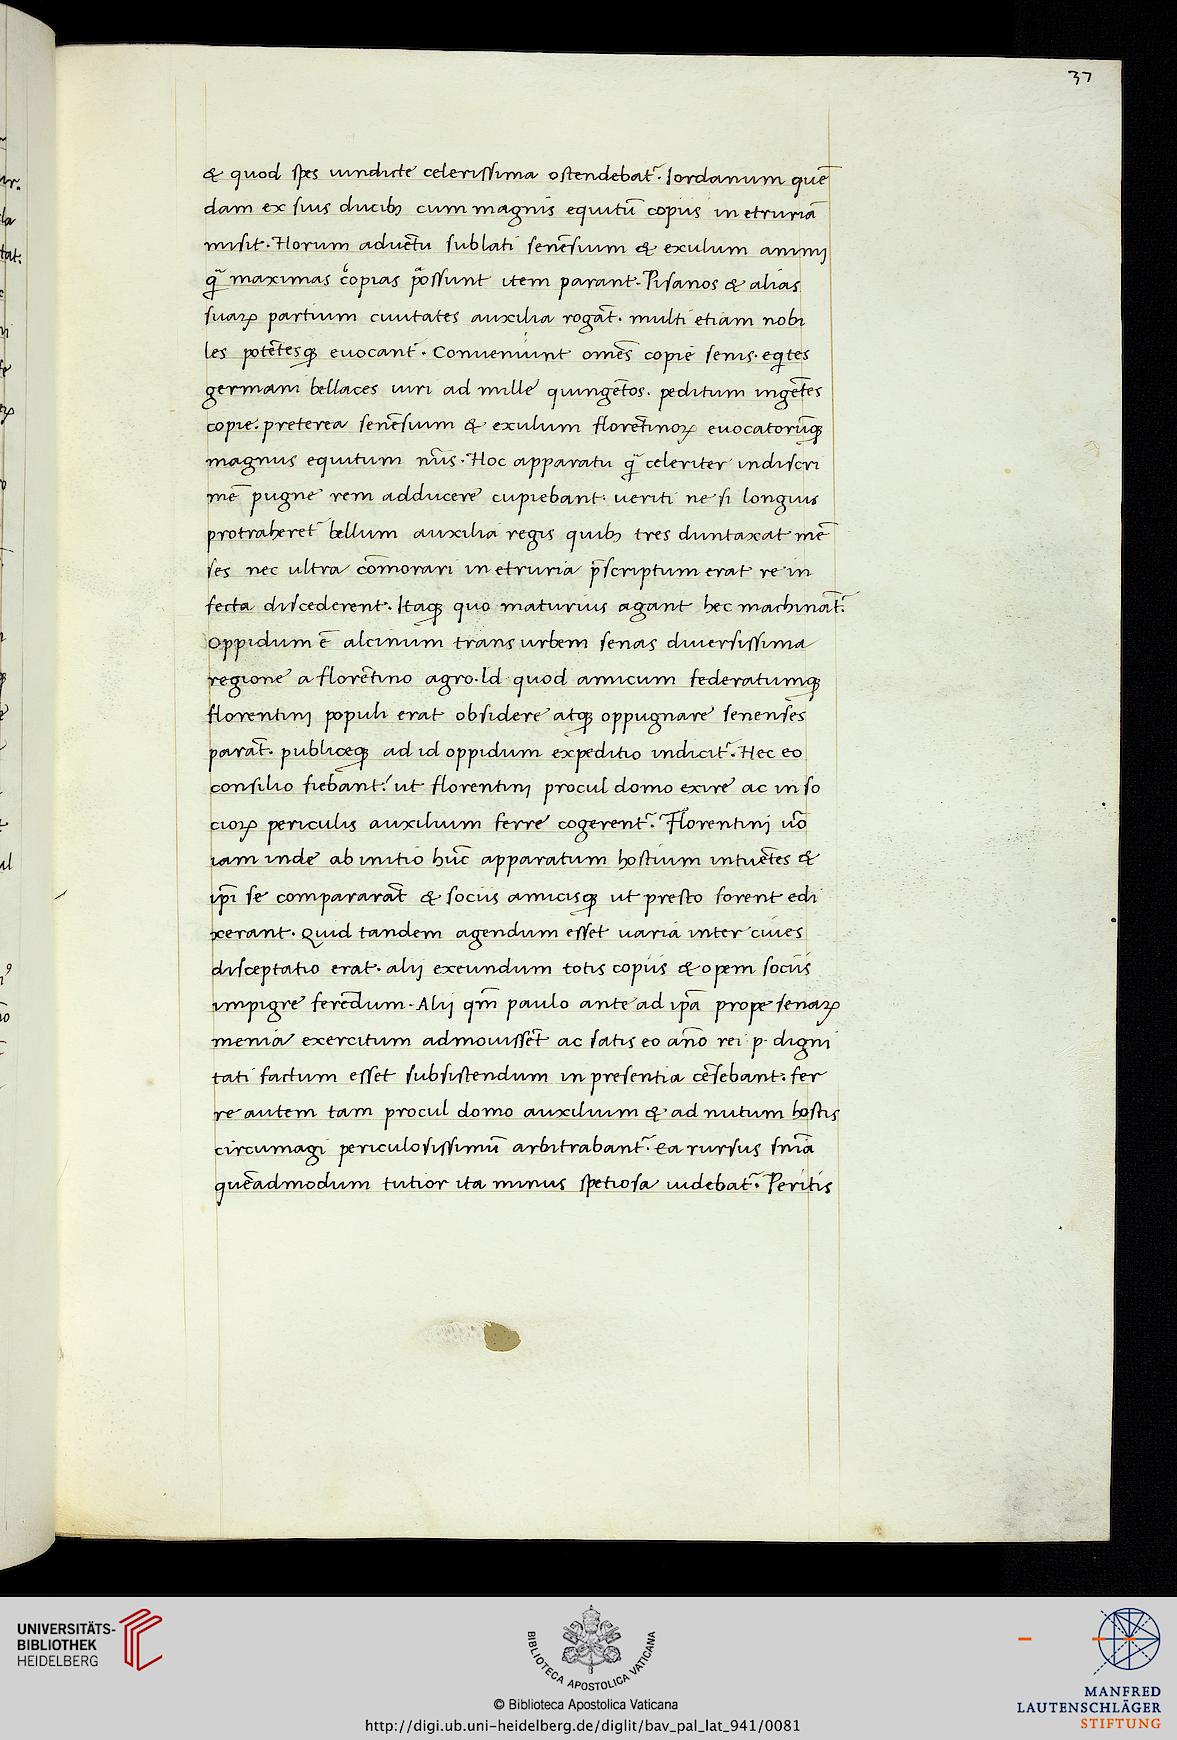 37
& quod spes uindicte celerissima ostendebat᷑. Iordanum quē
dam ex suis ducibꝫ cum magnis equitū copiis in etruriā
misit. Horum aduētu sublati senēsium & exulum animj
qᷓ maximas copias possunt item parant. Pisanos & alias
suaꝝ partium ciuitates auxilia rogāt. multi etiam nobi
les potētesqꝫ euocant᷑. Conueniunt om̄es copie senis. eqͥtes
germani bellaces uiri ad mille quingētos. peditum ingētes
copie. preterea senēsium & exulum florētinoꝝ euocatorūqꝫ
magnus equitum nūs. Hoc apparatu qᷓ celeriter in discri
mē pugne rem adducere cupiebant. ueriti ne si longius
protraheret᷑ bellum auxilia regis quibꝫ tres duntaxat mē
ses nec ultra cōmorari in etruria p̄scriptum erat re in
fecta discederent. Itaqꝫ quo maturius agant hec machinat᷑.
Oppidum ē alcinum trans urbem senas diuersissima
regione a florētino agro. Id quod amicum federatumqꝫ
florentinj populi erat obsidere atqꝫ oppugnare senenses
parāt. publiceqꝫ ad id oppidum expeditio indicit᷑. Hec eo
consilio fiebant. ut florentinj procul domo exire ac in so
cioꝝ periculis auxilium ferre cogerent᷑. Florentinj uō
iam inde ab initio hūc apparatum hostium intuētes &
ip̄i se compararāt & sociis amicisqꝫ ut presto forent edi
xerant. Quid tandem agendum esset uaria inter ciues
disceptatio erat. alij exeundum totis copiis & opem sociis
impigre ferēdum. Alij qm̄ paulo ante ad ip̄a prope senaꝝ
menia exercitum admouissēt ac satis eo an̄o rei p. digni
tati factum esset subsistendum in presentia cēsebant. fer
re autem tam procul domo auxilium & ad nutum hostis
circumagi periculosissimū arbitrabant᷑. Ea rursus sn̄ia
quēadmodum tutior ita minus spetiosa uidebat᷑. Peritis
UNIVERSITÄTS-
BIBLIOTHEK
HEIDELBERG
BIBLIOTECA APOSTOLICA VATICANA
© Biblioteca Apostolica Vaticana
http://digi.ub.uni-heidelberg.de/diglit/bav_pal_lat_941/0081
MANFRED
LAUTENSCHLÄGER
STIFTUNG